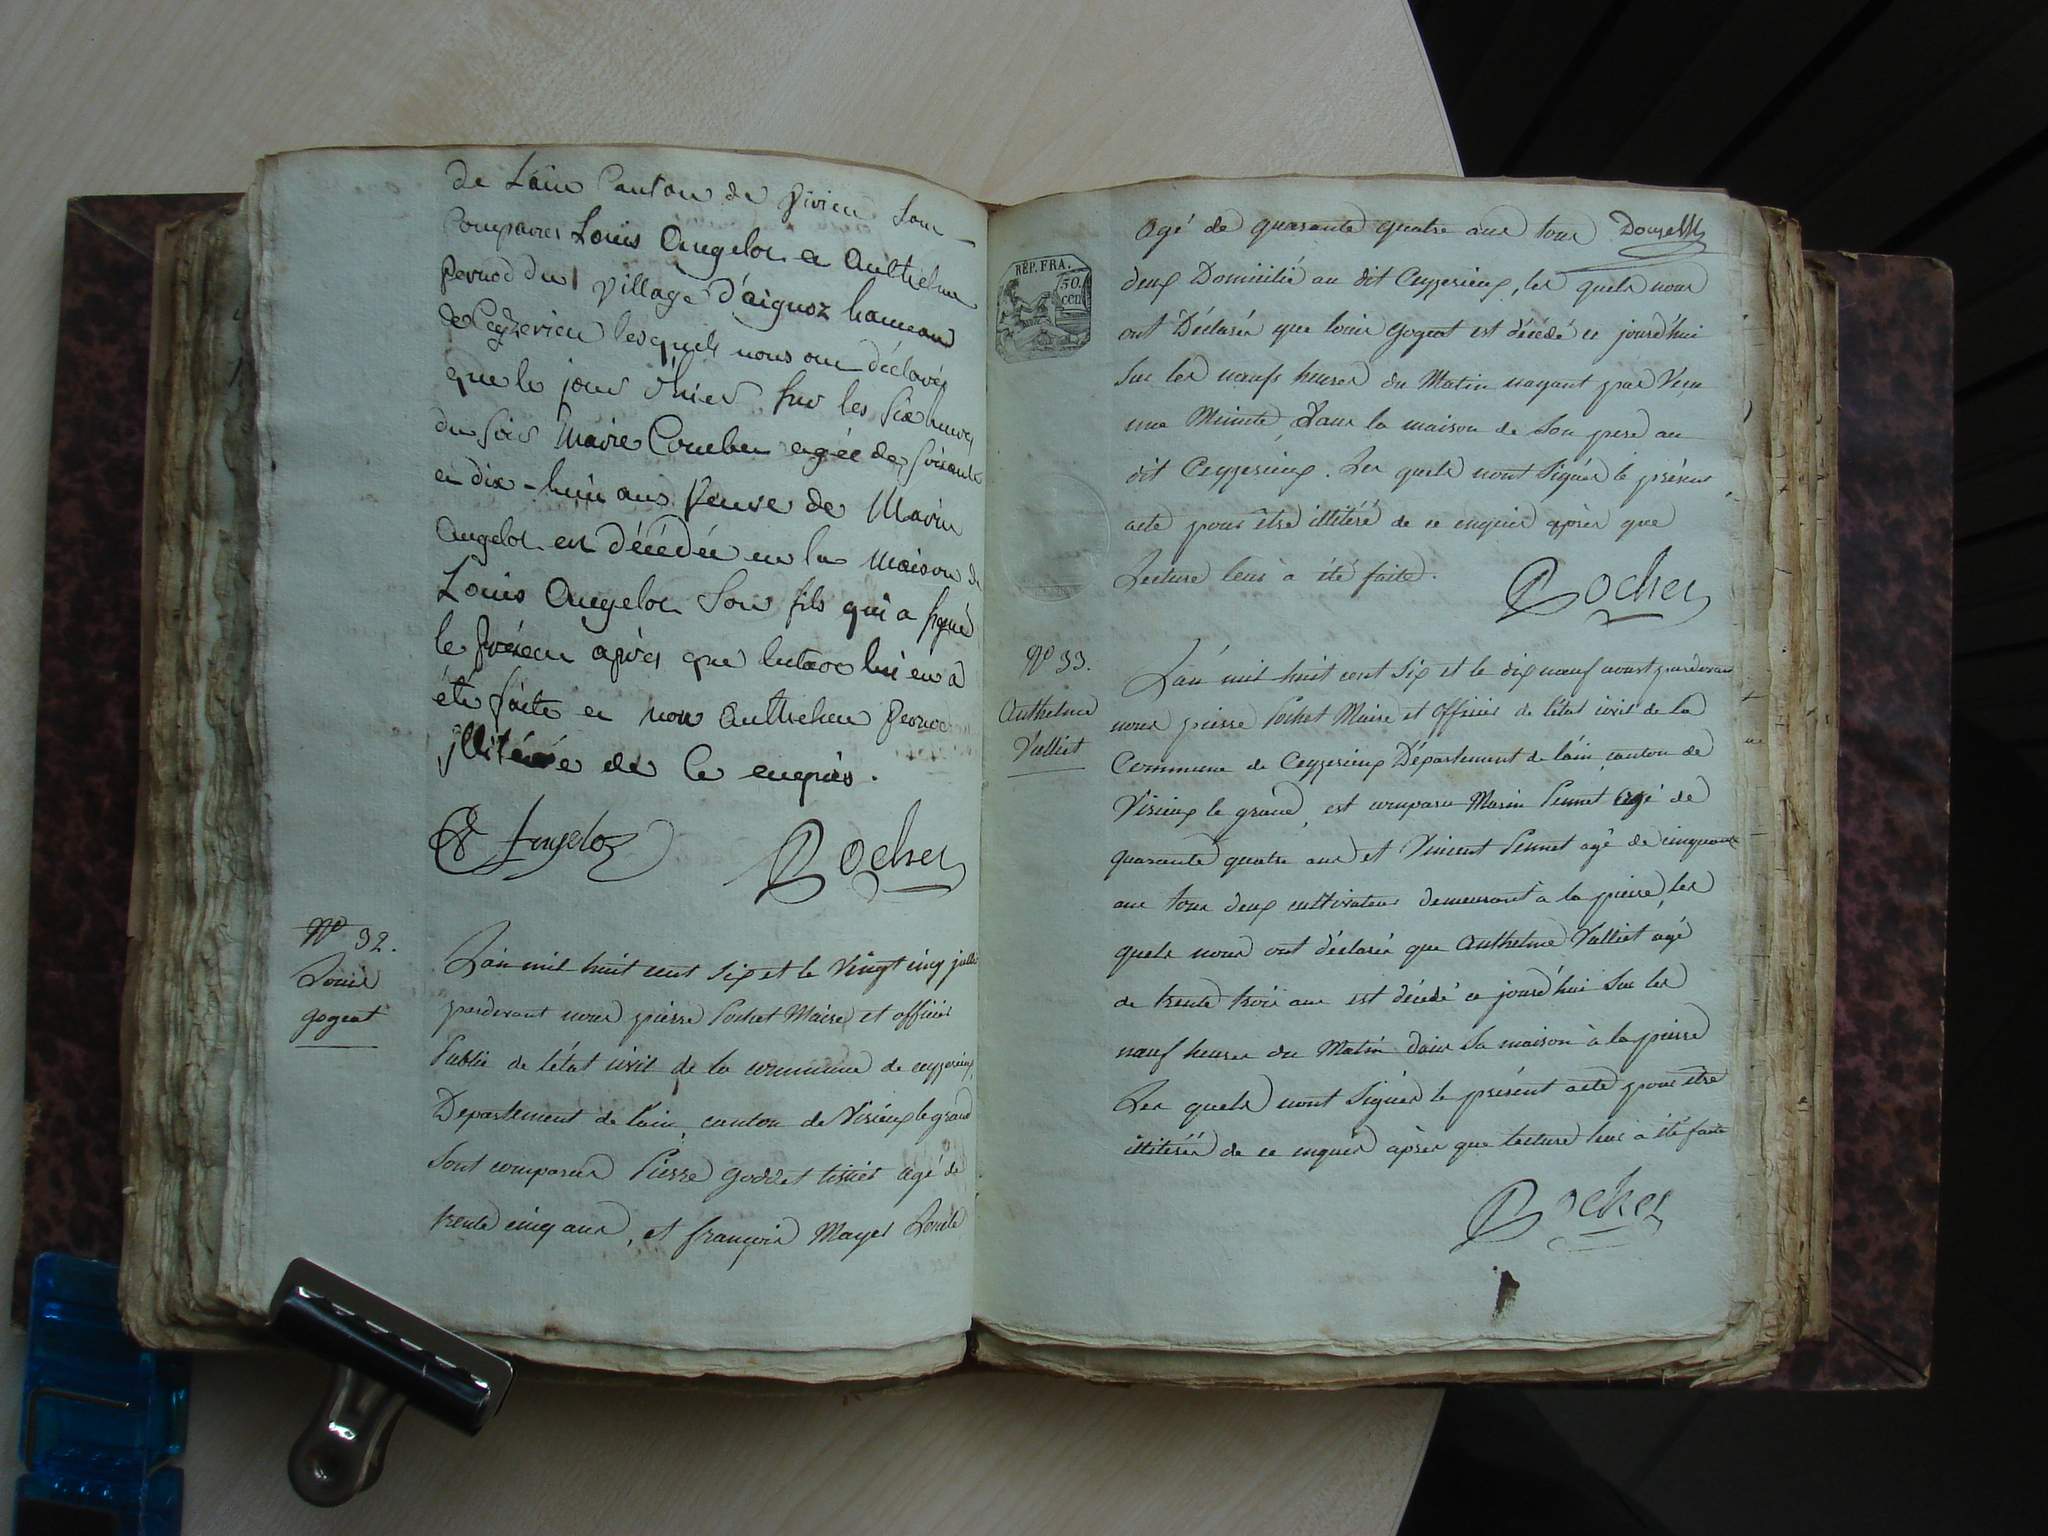 de Lain Canton de Virieu Sont
Comparus Louis Angelot et Anthelme
pernod du village d'aignoz hameau
de Ceyzerieu lesquels nous ont déclarés
que le jour d'hier sur les six heures
du soir Marie Coubet agée de soixante
et dix-huit ans veuve de Marin
Angelot est décédée en la maison de
Louis Angelot son fils qui a signé
le présent après que lecture lui en a
été faite et non Anthelme pernod
illitérée de ce enquis.
Angeloz
Pochet
N° 32.
Louis
gogeat
L'an mil huit cent six et le vingt cinq juillet
pardevant nous pierre Pochet Maire et officier
Public de l'état civil de la commune de ceyzerieux,
Département de l'ain, canton de Virieux le grand
Sont comparus Pierre goddet tissier agé de
trente cinq ans, et françois Mayer
REP. FRA.
50.
cen
agé de quarante quatre ans tous
deux Domicilié au dit Ceyzerieux, les quels nous
ont Déclarés que louis gogeat est décédé ce jourd'hui
Sur les neufs heures du Matin nayant par Vecu
une Minute, dans la maison de Son pere au
dit Ceyzerieux. Les quels n'ont Signés le présent
acte pour être illitéré de ce enquis après que
Lecture leur à été faite.
Pochet
N° 33.
Anthelme
Vulliet
L'an mil huit cent Six et le dix neuf aoust pardevant
nous pierre Pochet Maire et Officier de l'état civil de la
Commune de Ceyzerieux Département de l'ain, canton de
Virieux le grand, est comparu Marin Pennet agé de
quarante quatre ans et Vincent Pennet agé de cinquante
ans tous deux cultivateurs demeurant à la pierre, les
quels nous ont déclarés que Anthelme Vulliet agé
de trente trois ans est décédé ce jourd'hui Sur les
neuf heures du Matin dans Sa maison à la pierre
Les quels n'ont Signés le présent acte pour être
illitérés de ce enquis après que lecture leur à été faite
Pochet